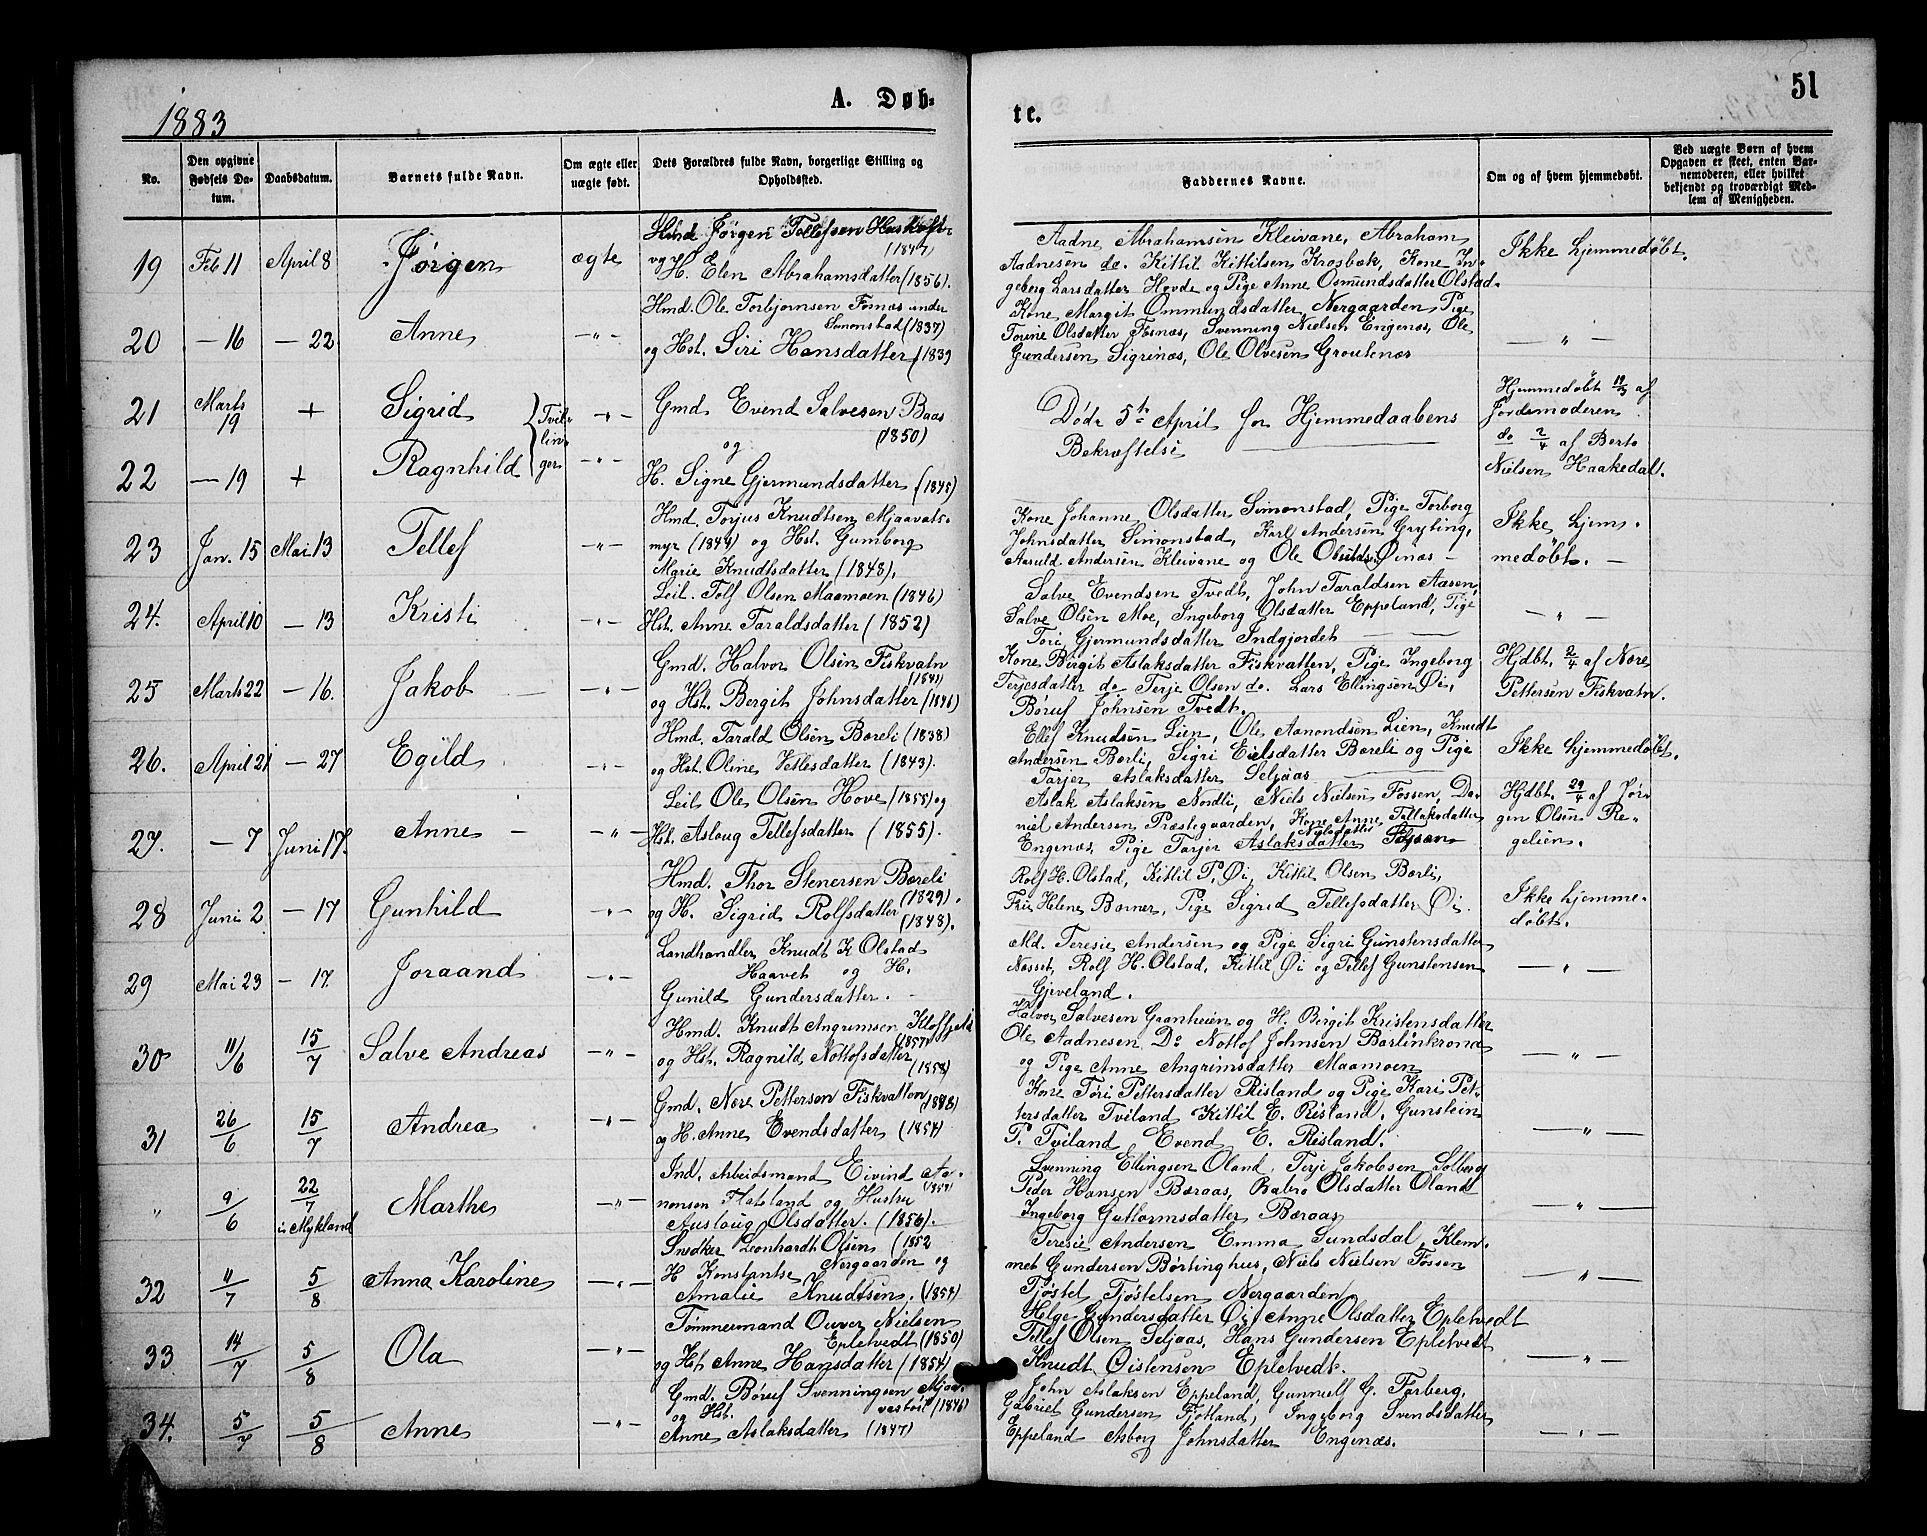 1883
A. Døb-
te.
51
No.
Den opgivne Fødsels Da-tum.
Daabsdatum.
Barnets fulde Navn.
Om ægte eller uægte født.
Dets Forældres fulde Navn, borgerlige Stilling og Opholdssted.
Faddernes Navne.
Om og af hvem hjemmedøbt.
Ved uægte Børn af hvem Opgaven er skeet, enten Bar-nemoderen, eller hvilket bekjendt og troværdigt Med-lem af Menigheden.
19 Feb 11 April 8 Jørgen ægte
Hmd Jørgen Tellefsen
(1847)
og H. Elen Abrahamsdatter (1856).
Aadne Abrahamsen Kleivane, Abraham
Aadnesen do. Kittil Kittilsen Krosbæk, Kone In-
geborg Larsdatter Hovde og Pige Anne Osmundsdatter Olstad.
Ikke hjemmedøbt.
20 — 16 — 22 Anne —"—
Hmd. Ole Torbjørnsen Fosnæs under
Simonstad (1837)
og Hst. Siri Hansdatter (1839
Kone Margit Ommundsdatter Nergaarden Pige
Torine Olsdatter Fosnæs, Svenning Nielsen Engenæs, Ole
Gundersen Sigrinæs, Ole Olvesen Groutenæs
— " —
21 Marts 19 + Sigrid —"—
22 — 19 + Ragnhild —"—
Tvil-
lin-
ger
Gmd Evend Salvesen Baas
(1850)
og
H. Signe Gjermundsdatter (1845)
Døde 5te April før Hjemmedaabens
Bekræftelse
Hjemmedøbt 19/3 af
Jordemoderen
do 2/4 af Berte
Nielsen Haakedal.
23 Jan. 15 Mai 13 Tellef —"—
Hmd. Torjus Knudtsen Mjaavats-
myr (1844) og Hst. Gumborg
Marie Knudtsdatter (1848).
Kone Johanne Olsdatter Simonstad, Pige Torborg
Johnsdatter Simonstad, Karl Andersen Gryting,
Aasuld Andersen Kleivane og Ole Øinæs —
Ikke hjem-
medøbt. —
24. April 10 — 13 Kristi —"—
Leil. Tolf Olsen Maamoen (1846)
Hst. Anne Taraldsdatter (1852)
Salve Evendsen Tvedt, John Taraldsen Aasen,
Salve Olsen Moe, Ingeborg Olsdatter Eppeland, Pige
Tori Gjermundsdatter Indgjordet — —
— " —
25 Marts 22 — 16. Jakob —"—
Gmd. Halvor Olsen Fiskvatn
og Hst. Bergit Johnsdatter (1846)
Kone Birgit Aslaksdatter Fiskvatten, Pige Ingeborg
Terjesdatter do Terje Olsen do. Lars Ellingsen Øi,
Børuf Johnsen Tvedt.
Hjdbt. 2/4 af Nere
Pettersen Fiskvatn.
26. April 21 — 27 Egild —"—
Hmd. Tarald Olsen Boreli (1838)
og Hst. Oline Vetlesdatter (1843).
Ellef Knudsen Lien, Ole Aanondsen Lien, Knudt
Andersen Borli, Sigri Eielsdatter Boreli og Pige
Tarjer Aslaksdatter Seljaas
Ikke hjemmedøbt.
27. — 7 Juni 17. Anne — —"—
Leil Ole Olsen Hove (1855) og
Hst. Aslaug Tellefsdatter (1855).
Aslak Aslaksen Nordli, Niels Nielsen Fossen, Da-
niel Andersen Præstegaarden, Kone Anne Tellaksdatter
Engenæs, Pige Tarjer Aslaksdatter
Hjdbt. 29/4 af Jør
gen Olsen Re-
gelien.
28 Juni 2 — 17 Gunhild —"—
Hmd. Thor Stenersen Boreli
(1829).
og H. Sigrid Rolfsdatter
(1848).
Rolf H. Olstad, Kittil P. Øi, Kittil Olsen Borli,
Frü Helene Børner, Pige Sigrid Tellefsdatter Øi.
Ikke hjemme-
døbt.
29 Mai 23 — 17. Joraand —"—
Landhandler Knudt K Olstad
Haavet og H.
Gunild Gundersdatter. —
Md. Teresie Andersen og Pige Sigri Gunstensdatter
Nesset, Rolf H. Olstad, Kittil Øi og Tellef Gunstensen
Gjeveland.
— " —
30 11/6 15/7 Salve Andreas —"—
Hmd. Knudt Angrimsen
(1857)
og Hst. Ragnild Notlofsdatter
(1858)
Halvor Salvesen Granheien og H. Birgit Kristensdatter
Ole Aadnesen Do Notlof Johnsen Bartinkrona
og Pige Anne Angrimsdatter Maamoen
— " —
31 26/6 15/7 Andrea —"—
Gmd. Nere Pettersen Fiskvatten
og H. Anne Evendsdatter (1854)
Kone Tori Pettersdatter Risland og Pige Kari Pet-
tersdatter Tviland Kittil E. Risland, Gunstein
P. Tviland Evend E. Risland.
— " —
" 9/6 22/7 i Mykland Marthe —"—
Ind. Arbeidsmand Eivind Aa-
nonsen Flatland og Hustru
Auslaug Olsdatter. (1856).
Svenning Ellingsen Oland, Terje Jakobsen Solberg
Peder Hansen Børaas, Babro Olsdatter Oland
Ingeborg Guttormsdatter Børaas
— " —
32 11/7 5/8 Anna Karoline —"—
Snedker Leonhardt Olsen (1852
Nergaarden og
H Konstantse
Amalie Knudtsen. (1854)
Teresie Andersen Emma Sundsdal, Klem-
met Gundersen Børtinghus, Niels Nielsen Fossen
Tjøstel Tjøstelsen Nergaarden
— " —
33 14/7 5/8 Ola —"—
Tømmermand Ouver Nielsen
Epletvedt (1850)
og Hst Anne Hansdatter (1854)
Helge Gundersdatter Øi, Anne Olsdatter Epletvedt
Tellef Olsen Seljaas, Hans Gundersen Epletvedt
Knudt Øistensen Epletvedt.
— " —
34. 5/7 5/8 Anne —"—
Gmd. Børuf Svenningsen Mjaa-
vastøil (1846)
og Hst.
Anne Aslaksdatter (1847)
John Aslaksen Eppeland, Gunnulf G. Farberg,
Gabriel Gundersen Fjotland, Ingeborg Svendsdatter
Eppeland Asborg Johnsdatter Engenæs.
— " —